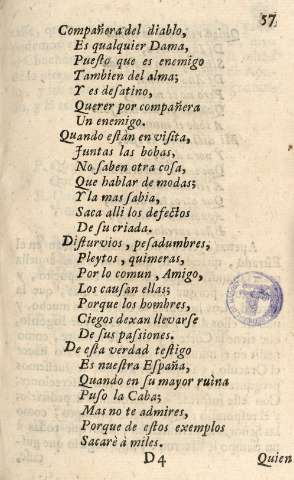 57
Compañera del diablo,
Es qualquier Dama,
Puesto que es enemigo
Tambien del alma;
Y es desatino,
Querer por compañera
Un enemigo.
Quando están en visita,
Juntas las bobas,
No saben otra cosa,
Que hablar de modas;
Y la mas sabia,
Saca alli los defectos
De su criada.
Disturvios, pesadumbres,
Pleytos, quimeras,
Por lo comun, Amigo,
Los causan ellas;
Porque los hombres,
Ciegos dexan llevarse
De sus passiones.
De esta verdad testigo
Es nuestra España,
Quando en su mayor ruìna
Puso la Caba;
Mas no te admires,
Porque de estos exemplos
Sacarè à miles.
D4
Quien